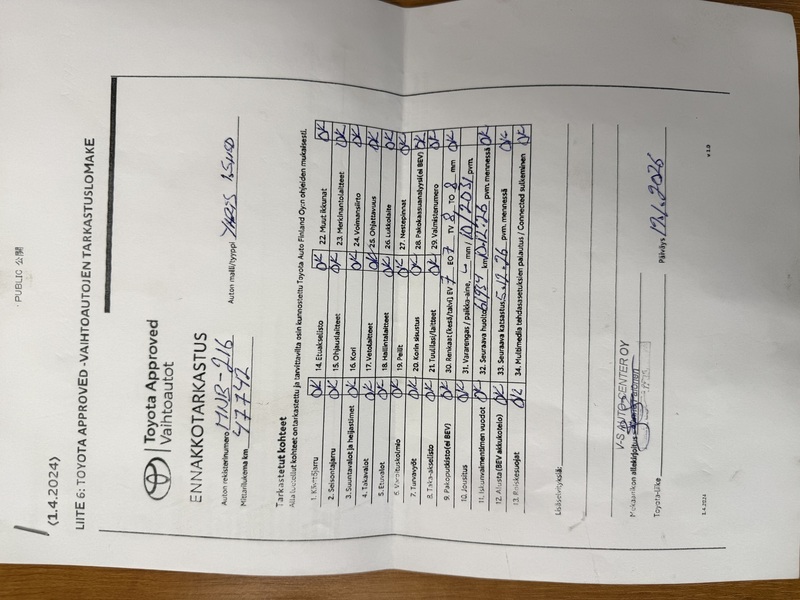 PUBLIC 公開
(1.4.2024)
LIITE 6: TOYOTA APPROVED -VAIHTOAUTOJEN TARKASTUSLOMAKE
Toyota Approved
Vaihtoautot
ENNAKKOTARKASTUS
Auton rekisterinumero MNB-216 Auton malli/tyyppi YARIS
Mittarilukema km 47742
Tarkastetut kohteet
Alla luetellut kohteet on tarkastettu ja tarvittavilta osin kunnostettu Toyota Auto Finland Oy:n ohjeiden mukaisesti.
1. Käsijarru OK 14. Etuakselisto OK 22. Muut ikkunat OK
2. Seisontajarru OK 15. Ohjauslaitteet OK 23. Merkinantolaitteet OK
3. Suuntavalot ja heijastimet OK 16. Kori OK 24. Voimansiirto OK
4. Takavalot OK 17. Vetolaitteet OK 25. Ohjattavuus OK
5. Etuvalot OK 18. Hallintalaitteet OK 26. Lukkolaite OK
6. Varoituskolmio OK 19. Peilit OK 27. Nestepinnat OK
7. Turvavyöt OK 20. Korin sisustus OK 28. Pakokaasuanalyysi(ei BEV) OK
8. Taka-akselisto OK 21. Tuulilasi/laitteet OK 29. Valmistenumero OK
9. Pakoputkisto(ei BEV) OK 30. Renkaat (kesä/talvi), EV 7 EO 7 TV 8 TO 8 mm OK
10. Jousitus OK 31. Vararengas / paikka-aine, mm / 10/2031 pvm.
11. Iskunvaimentimen vuodot OK 32. Seuraava huolto 61934 km pvm. mennessä OK
12. Alusta (BEV akkukotelo) OK 33. Seuraava katsastus 5.12.26 pvm. mennessä OK
13. Roiskesuojat OK 34. Multimedia tehdasasetuksien palautus / Connected sulkeminen OK
Lisäselvityksiä:
V-S AUTO CENTER OY
Mekaanikon allekirjoitus
Toyota-liike Päiväys 12.1.2026
1.4.2024 v 1.9